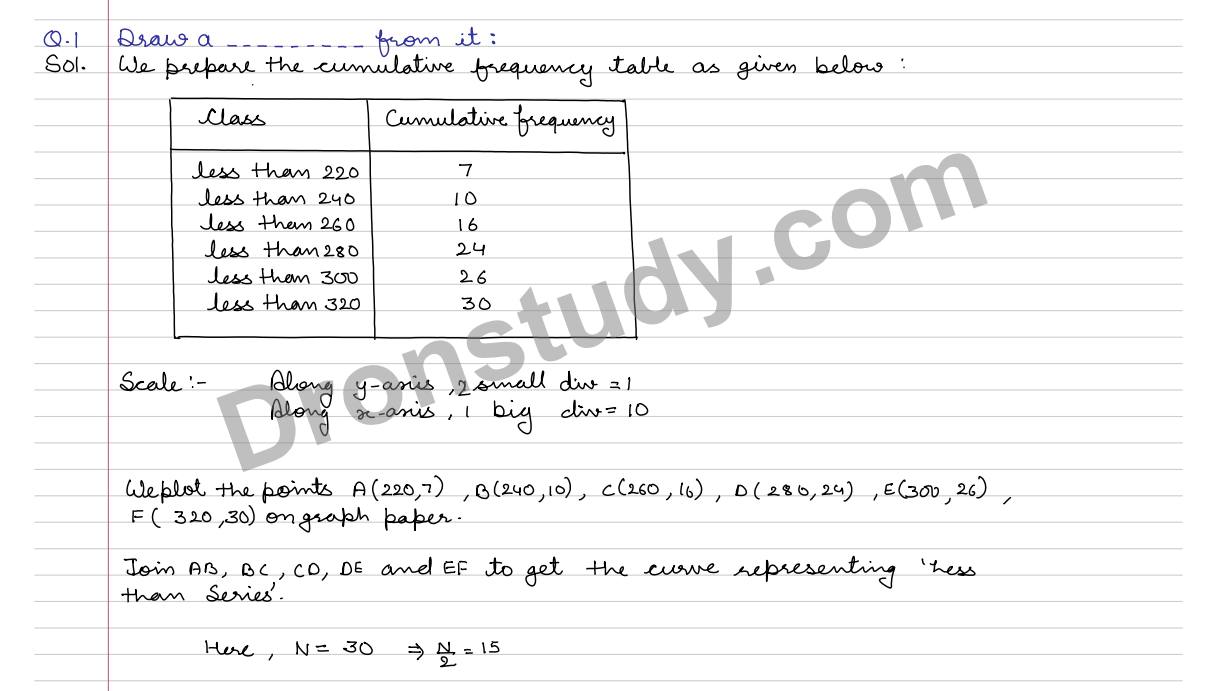 Q.1 Draw a _ _ _ _ _ _ _ _ _ from it :
Sol. We prepare the cumulative frequency table as given below :
Class Cumulative frequency
less than 220 7
less than 240 10
less than 260 16
less than 280 24
less than 300 26
less than 320 30
Scale :- Along y-axis , 2 small div = 1
Along x-axis , 1 big div = 10
We plot the points A(220,7) , B(240,10) , C(260,16) , D(280,24) , E(300,26) ,
F( 320,30) on graph paper.
Join AB, BC, CD, DE and EF to get the curve representing 'Less
than Series'.
Here , N = 30 ⇒ N/2 = 15
Dronstudy.com